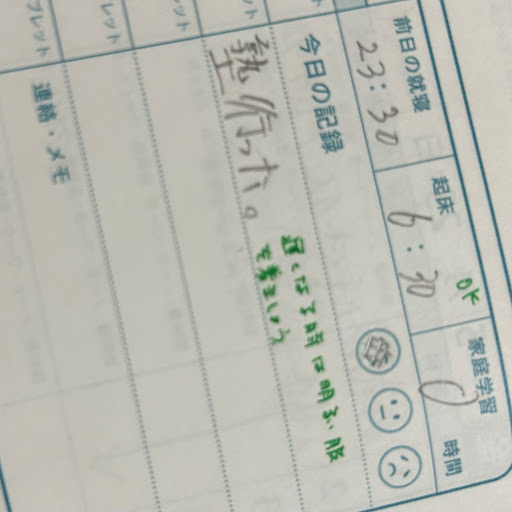 前日の就寝
起床
家庭学習
23:30
6:30
OK
0
時間
今日の記録
塾行った。
遅くなる時は明るい服
を着ましょう
連絡・メモ
レット
レット
レット